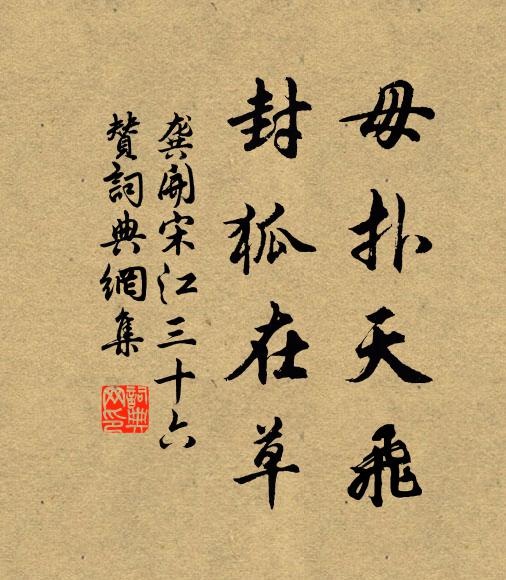 毋扑天飛
封狐在草
龚開宋江三十六
贊詞典網集
詞典
网印